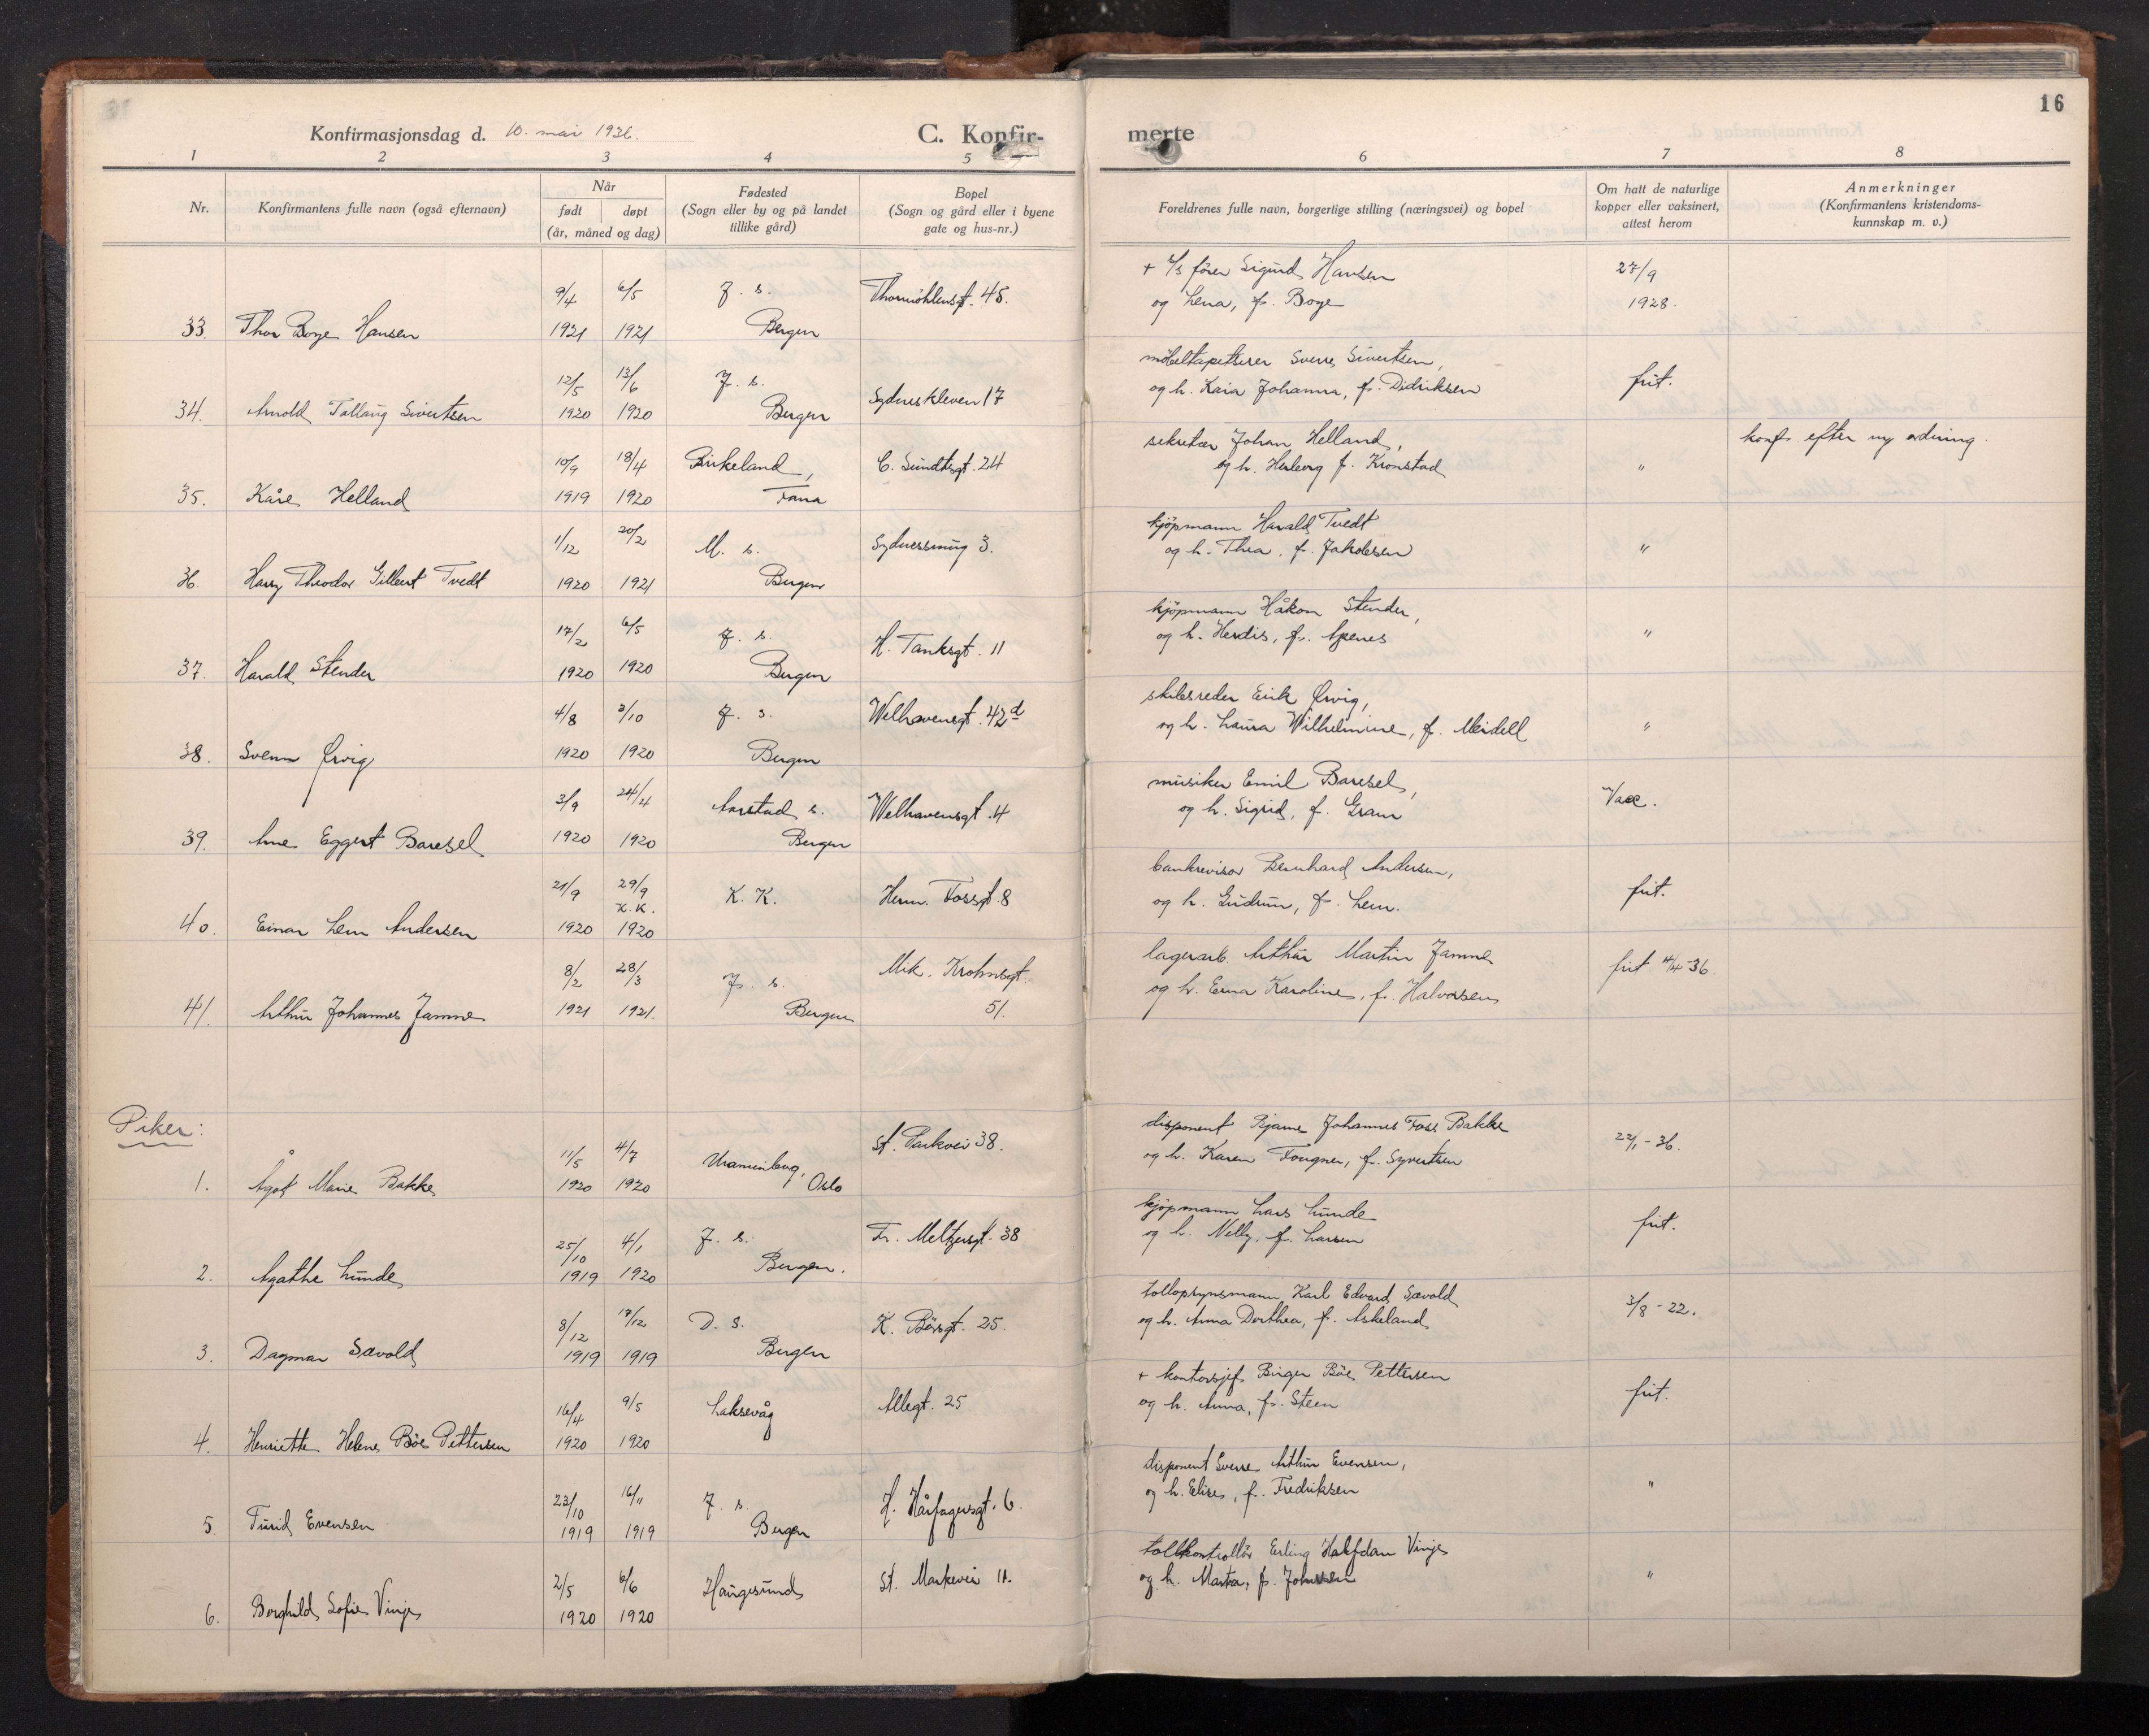 16
Konfirmasjonsdag d. 10. mai 1936.
C. Konfir-
merte
1 2 3 4 5 6 7 8
Nr.
Konfirmantens fulle navn (også efternavn)
Når
født døpt
(år, måned og dag)
Fødested
(Sogn eller by og på landet
tillike gård)
Bopel
(Sogn og gård eller i byene
gate og hus-nr.)
Foreldrenes fulle navn, borgerlige stilling (næringsvei) og bopel
Om hatt de naturlige
kopper eller vaksinert,
attest herom
Anmerkninger
(Konfirmantens kristendoms-
kunnskap m. v.)
9/4 6/5 J. s. Thormöhlensgt. 45. + fører Sigurd Hansen 27/9
og Lena, f. Boge 1928.
33. Thor Boge Hansen 1921 1921 Bergen
12/5 13/6 J. s. Sydneskleven 17 møbeltapetserer Sverre Sivertsen,
og h. Kaia Johanna, f. Didriksen frit.
34. Arnold Tallaug Sivertsen 1920 1920 Bergen
10/9 18/4 Birkeland, C. Sundtsgt. 24 sekretær Johan Helland, konf. efter ny ordning.
og h. Herborg f. Kronstad "
35. Kåre Helland 1919 1920 Fana
1/12 20/2 M. s. Sydnessmug 3. kjøpmann Harald Tvedt
og h. Thea, f. Jakobsen "
36. Harry Theodor Gilbert Tvedt 1920 1921 Bergen
17/2 6/5 J. s. H. Tanksgt. 11 kjøpmann Håkon Stender,
og h. Herdis, f. Apenes "
37. Harald Stender 1920 1920 Bergen
4/8 3/10 J. s. Welhavensgt. 42d skibsreder Erik Ørvig,
og h. Laura Wilhelmine, f. Meidell "
38. Svenn Ørvig 1920 1920 Bergen
3/9 24/4 Aarstad s. Welhavensgt. 4 musiker Emil Baresel, Vacc.
og h. Sigrid, f. Gram
39. Arne Eggert Baresel 1920 1920 Bergen
21/9 29/9 K. K. Herm. Fossgt. 8 bankrevisor Bernhard Andersen, frit.
K. K. og h. Gudrun, f. Lem.
40. Einar Lem Andersen 1920 1920
8/2 28/3 J. s. Mik. Krohnsgt. lagerarb. Arthur Martin Jamne frit 4/4-36.
og h. Erna Karoline, f. Halvorsen
41. Arthur Johannes Jamne 1921 1921. Bergen 51.
Piker:
11/5 4/7 Uranienborg, St. Parkvei 38. disponent Bjarne Johannes Foss Bakke 22/1-36.
og h. Karen Fougner, f. Syvertsen
1. Ågot Marie Bakke 1920 1920 Oslo
25/10 4/1 J. s. Fr. Meltzersgt. 38 kjøpmann Lars Lunde frit.
og h. Nelly, f. Larsen
2. Agathe Lunde 1919 1920 Bergen.
8/12 17/12 D. s. K. Børsgt. 25. tollopsynsmann Karl Edvard Sævold 3/8-22.
og h. Anna Dorthea, f. Askeland
3. Dagmar Sævold 1919 1919 Bergen
16/4 9/5 Laksevåg Allegt. 25 + kontorsjef Birger Böe Pettersen frit.
og h. Anna, f. Steen
4. Henriette Helene Böe Pettersen 1920 1920
23/10 16/11 J. s. H. Hårfagersgt. 6. disponent Sverre Arthur Evensen,
og h. Elise, f. Fredriksen "
5. Turid Evensen 1919 1919 Bergen
2/5 6/6 Haugesund St. Markevei 11. tollkontrollör Erling Halfdan Vinje
og h. Marta, f. Johnsen "
6. Borghild Sofie Vinje 1920 1920